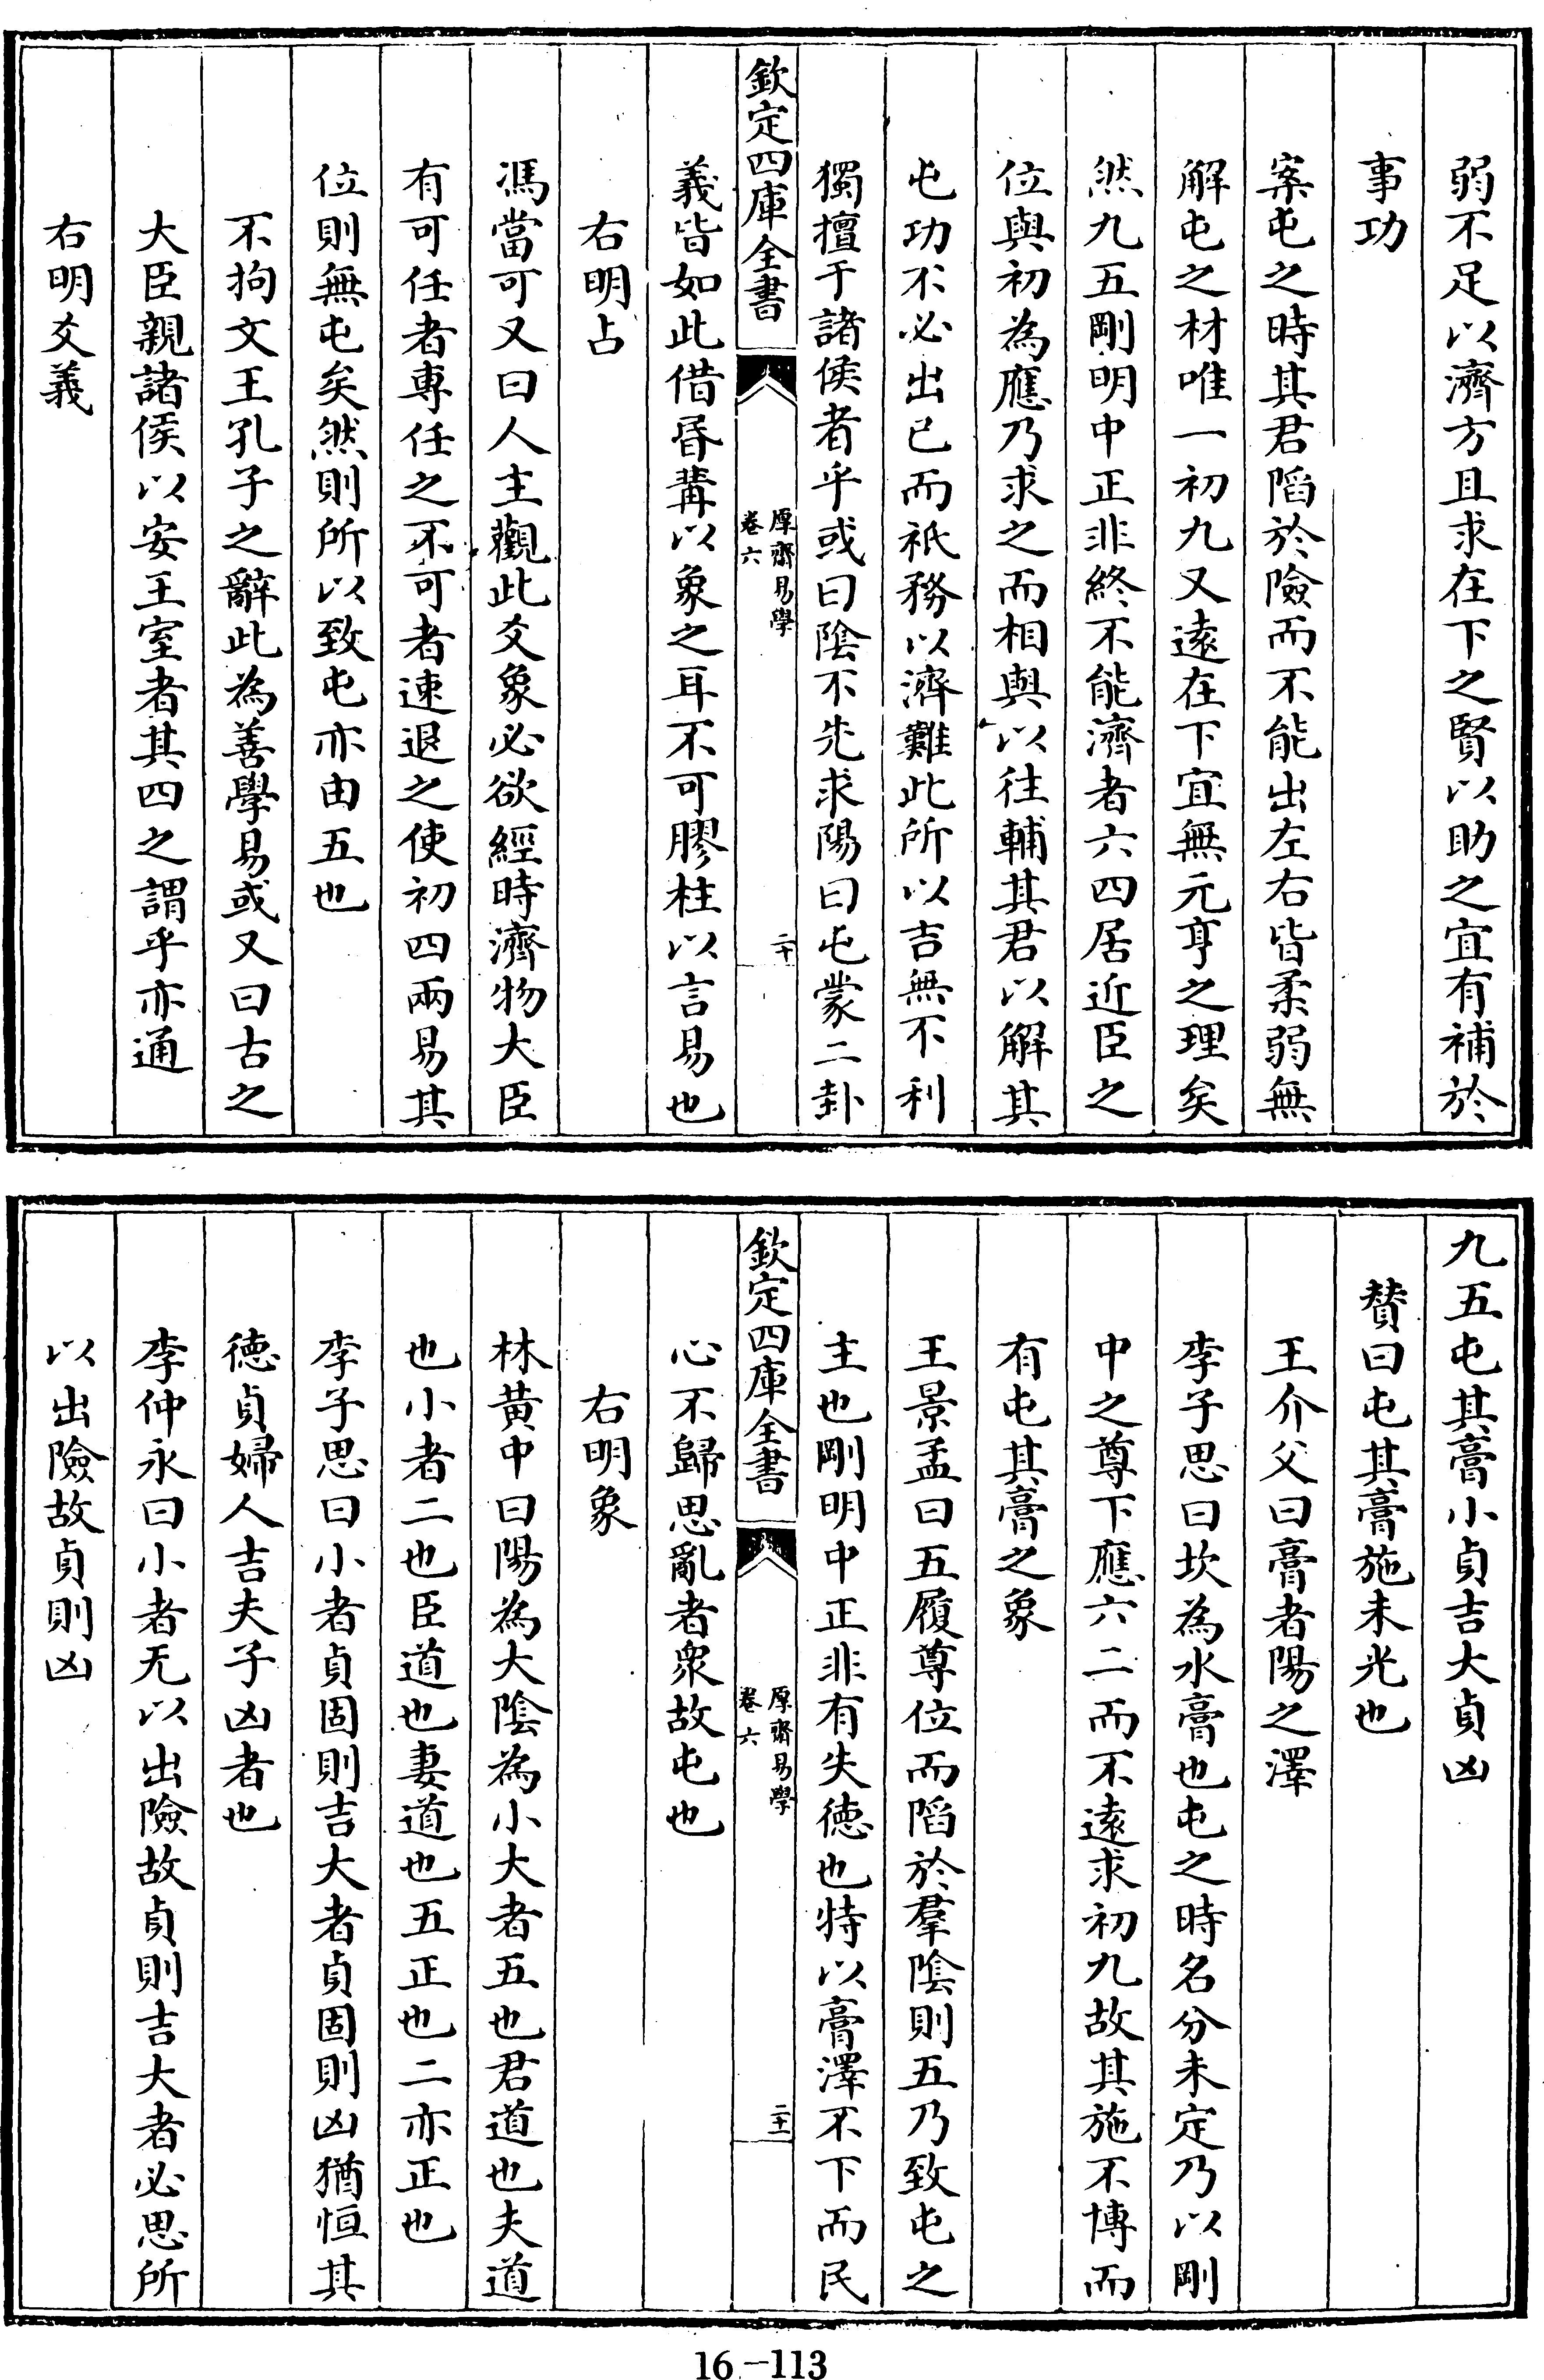 弱不足以濟方且求在下之賢以助之宜有補於
事功
案屯之時其君陷於險而不能出左右皆柔弱無
解屯之材唯一初九又遠在下宜無元亨之理矣
然九五剛明中正非終不能濟者六四居近臣之
位與初為應乃求之而相與以往輔其君以解其
屯功不必出已而祇務以濟難此所以吉無不利
獨擅于諸侯者乎或曰陰不先求陽曰屯蒙二卦
欽定四庫全書
厚齋易學
卷六
二十
義皆如此借昬冓以象之耳不可膠柱以言易也
右明占
馮當可又曰人主觀此爻象必欲經時濟物大臣
有可任者專任之不可者速退之使初四兩易其
位則無屯矣然則所以致屯亦由五也
不拘文王孔子之辭此為善學易或又曰古之
大臣親諸侯以安王室者其四之謂乎亦通
右明爻義
九五屯其膏小貞吉大貞凶
贊曰屯其膏施未光也
王介父曰膏者陽之澤
李子思曰坎為水膏也屯之時名分未定乃以剛
中之尊下應六二而不遠求初九故其施不博而
有屯其膏之象
王景孟曰五履尊位而陷於羣陰則五乃致屯之
主也剛明中正非有失德也特以膏澤不下而民
欽定四庫全書
厚齋易學
卷六
二十一
心不歸思亂者衆故屯也
右明象
林黃中曰陽為大陰為小大者五也君道也夫道
也小者二也臣道也妻道也五正也二亦正也
李子思曰小者貞固則吉大者貞固則凶猶恒其
德貞婦人吉夫子凶者也
李仲永曰小者无以出險故貞則吉大者必思所
以出險故貞則凶
16-113